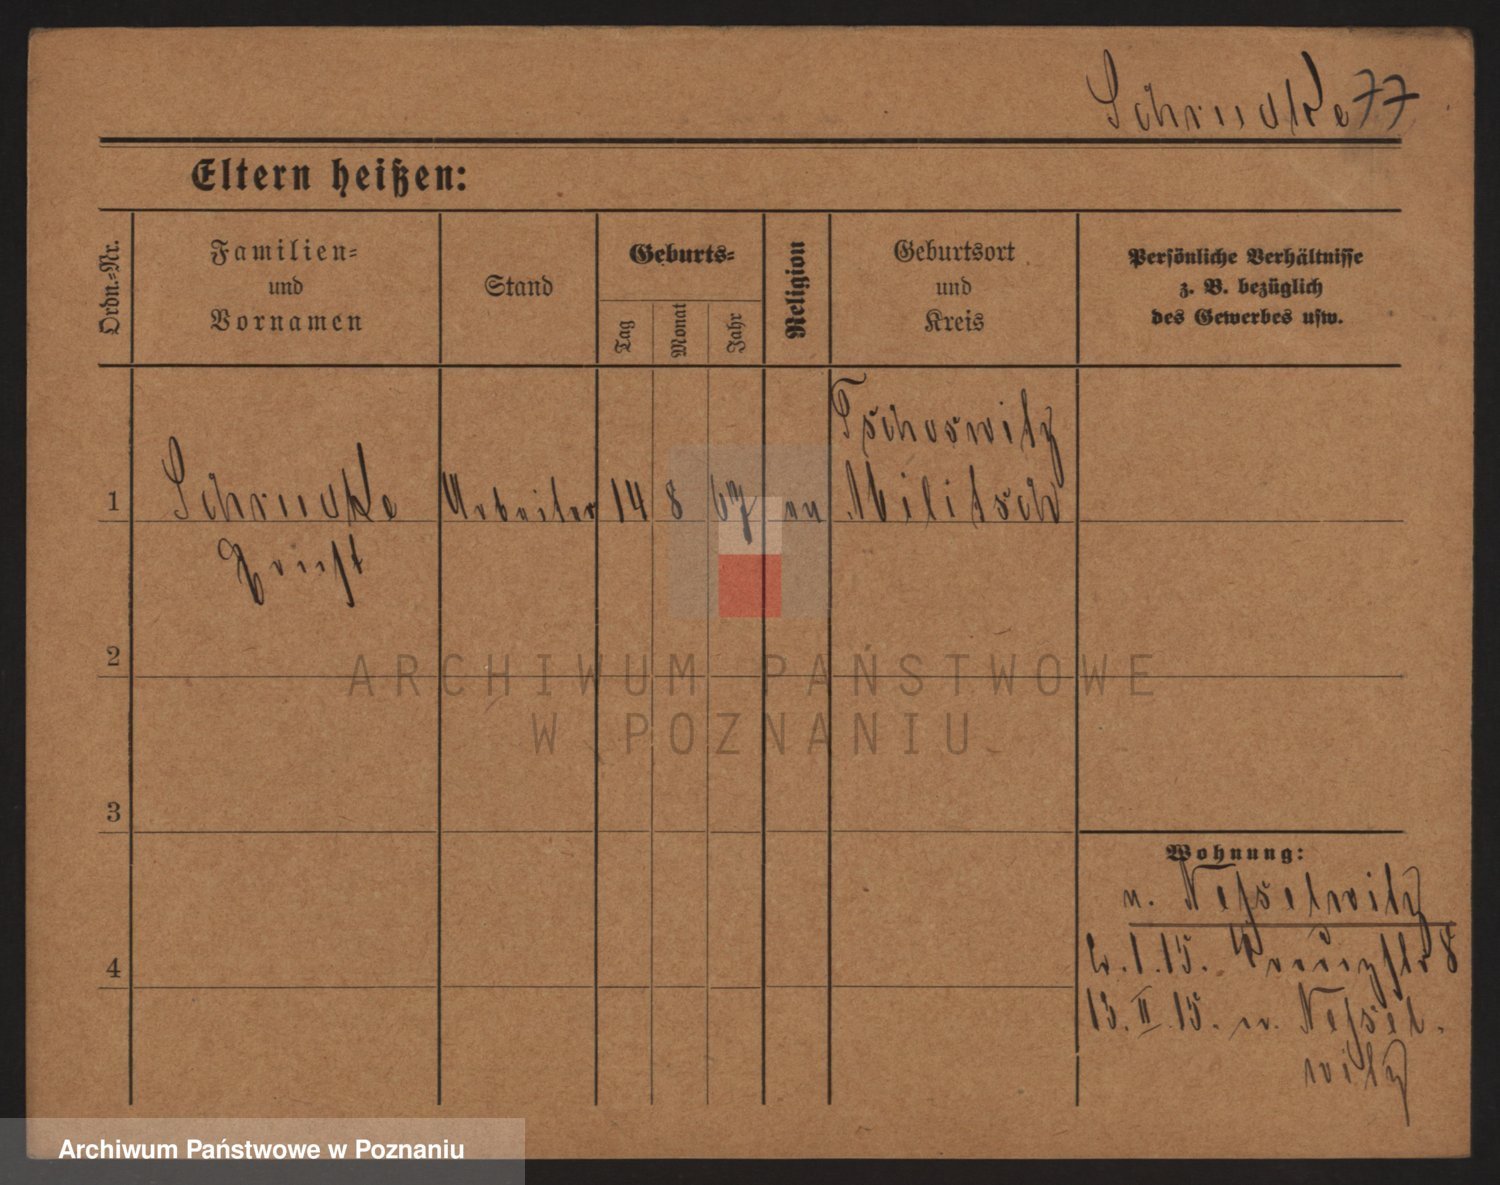 Schrudke 77
Eltern heißen:
Ordn.=Nr.
Familien=
und
Vornamen
Stand
Geburts=
Tag
Monat
Jahr
Religion
Geburtsort
und
Kreis
Persönliche Verhältnisse
z. B. bezüglich
des Gewerbes usw.
1
Schrudke
Ernst
Arbeiter
14
8
67
ev
Tschoswitz
Militsch
2
3
4
Wohnung:
n. Nesselwitz
1.15. Kreuzstr 8
13.II.15. n. Nessel-
witz
ARCHIWUM PAŃSTWOWE
W POZNANIU
Archiwum Państwowe w Poznaniu